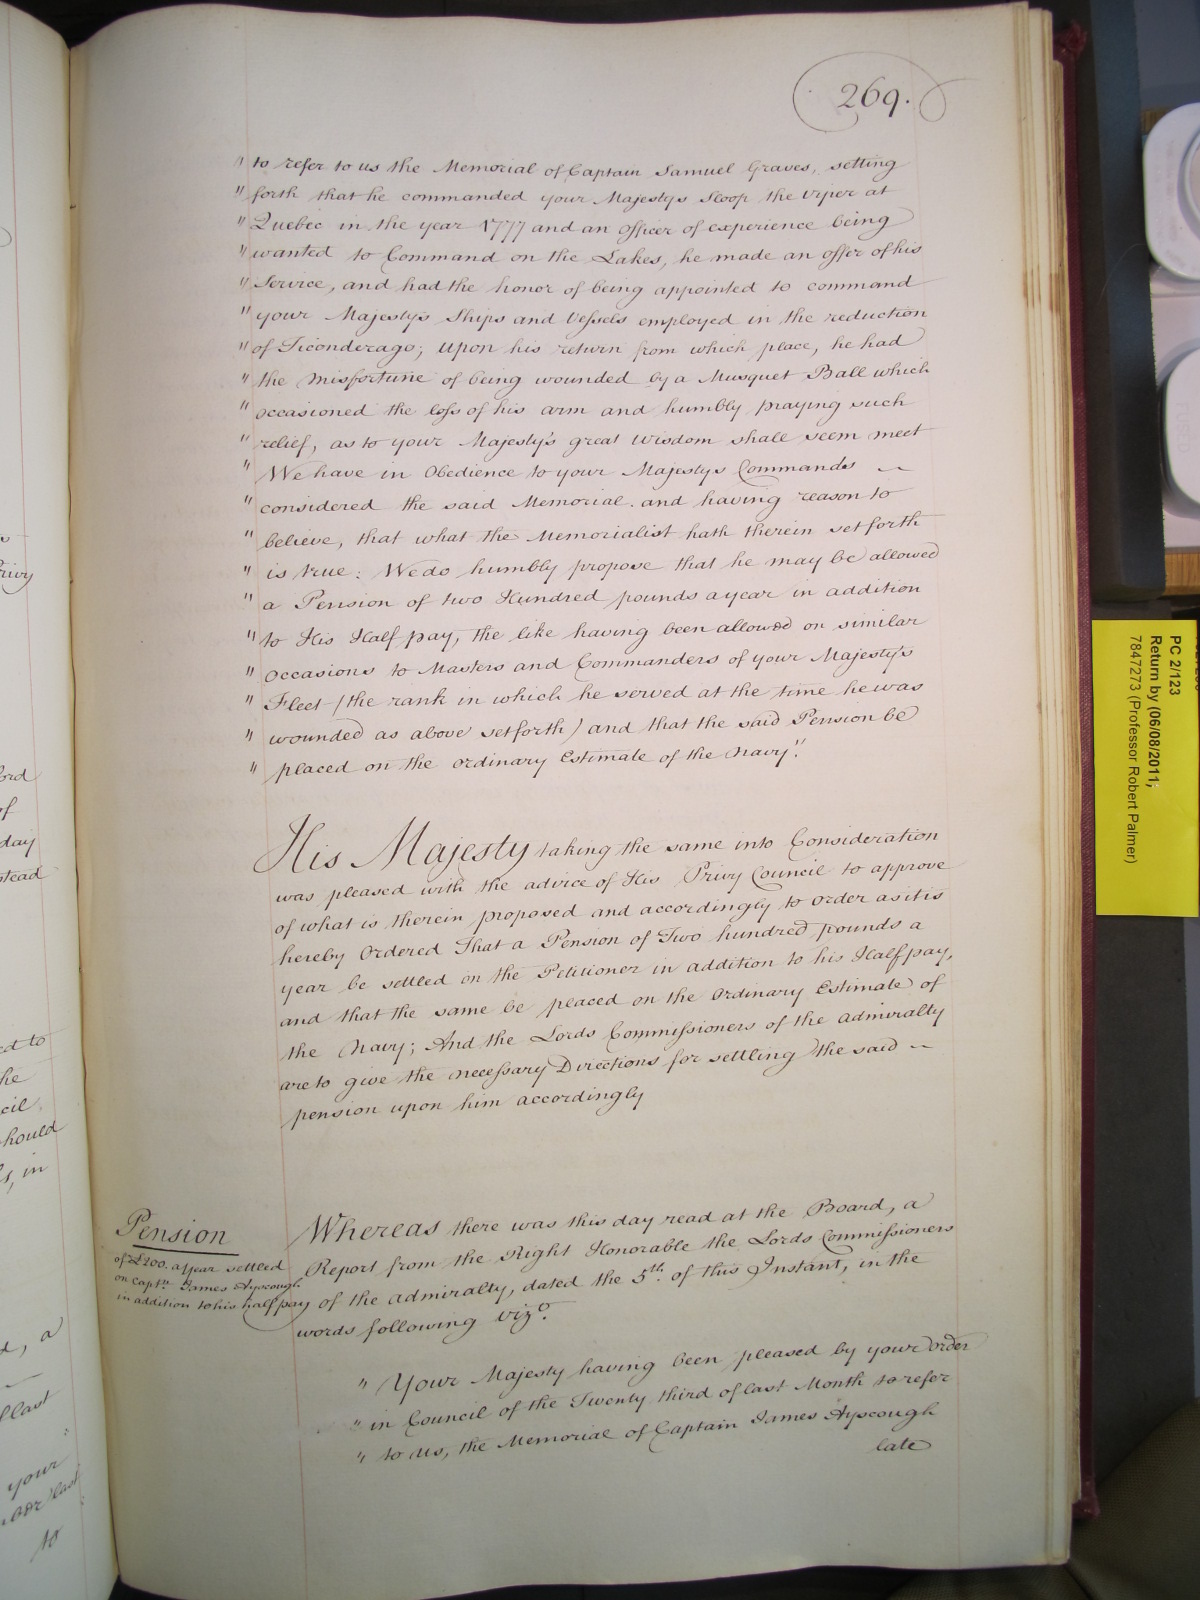 269.
" to refer to us the Memorial of Captain Samuel Graves, setting
" forth that he commanded your Majestys Sloop the Viper at
" Quebec in the year 1777 and an Officer of experience being
" wanted to Command on the Lakes, he made an offer of his
" Service, and had the honor of being appointed to command
" your Majestys Ships and Vessels employed in the reduction
" of Ticonderago; upon his return from which place, he had
" the misfortune of being wounded by a Musquet Ball which
" occasioned the loss of his arm and humbly praying such
" relief, as to your Majesty's great Wisdom shall seem meet
" We have in Obedience to your Majestys Commands
" considered the said Memorial. and having reason to
" believe, that what the Memorialist hath therein set forth
" is true: We do humbly propose that he may be allowed
" a Pension of two Hundred pounds a year in addition
" to His Half pay, the like having been allowed on similar
" occasions to Masters and Commanders of your Majesty's
" Fleet (the rank in which he served at the time he was
" wounded as above set forth) and that the said Pension be
" placed on the ordinary Estimate of the Navy."
His Majesty taking the same into Consideration
was pleased with the advice of His Privy Council to approve
of what is therein proposed and accordingly to order as it is
hereby Ordered That a Pension of Two hundred pounds a
year be settled on the Petitioner in addition to his Half pay,
and that the same be placed on the Ordinary Estimate of
the Navy; And the Lords Commissioners of the Admiralty
are to give the necessary Directions for settling the said
pension upon him accordingly
Pension
of £200. a year settled
on Captn. James Ayscough
in addition to his half pay
Whereas there was this day read at the Board, a
Report from the Right Honorable the Lords Commissioners
of the Admiralty, dated the 5th. of this Instant, in the
words following Vizo.
" Your Majesty having been pleased by your order
" in Council of the Twenty third of last Month to refer
" to us, the Memorial of Captain James Ayscough
late
PC 2/123
Return by (06/08/2011;
7847273 (Professor Robert Palmer)